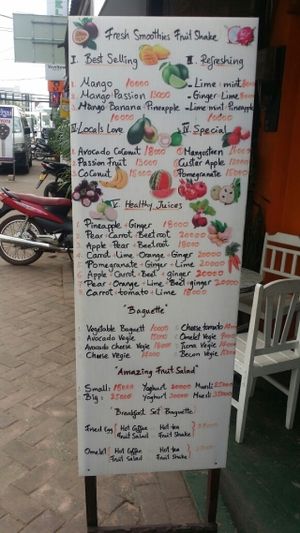 Fresh Smoothies Fruit Shake
I. Best Selling II. Refreshing
Mango 10000 Lime + mint
Mango Passion Ginger Lime
Mango Banana Pineapple Lime mint Pineapple
III Locals Love IV. Special
Avocado Coconut 18000 Mangosteen 15000
Passion Fruit 15000 Custer Apple
Coconut 15000 Pomegranate
V. Healthy Juices
Pineapple + Ginger 18000
Pear + Carrot + Beetroot 20000
Apple + Pear + Beetroot
Carrot + Lime + Orange + Ginger 20000
Pomegranate + Ginger + Lime 20000
Apple + Carrot + Beet + ginger 20000
Pear + Orange + Lime + Beet + ginger 20000
Carrot + tomato + Lime 18000
"Baguette"
Vegetable Baguett Cheese tomato
Avocado Vegie Omelet Vegie
Avocado Cheese Vegie Tuna Vegie
Cheese Vegie Becon Vegie
"Amazing Fruit Salad"
Small: 18000 Yoghurt 20000 Muesli
Big: 25000 Yoghurt 30000 Muesli
"Breakfast Set Baguette"
Fried Egg Hot Coffee Hot tea
Fruit Salad Fruit Shake
Omelet Hot Coffee Hot tea
Fruit Salad Fruit Shake